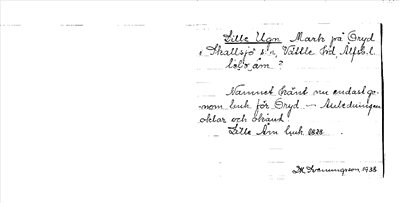 Lille Ugn Mark på Gryd
i Skallsjö s:n, Vättle hd, Älfsb. l.
Namnet känt nu endast ge-
nom bruk för Gryd. — Anledningen
oklar och okänd.
Lille Åm bruk 1828.
M Svenungsson 1938